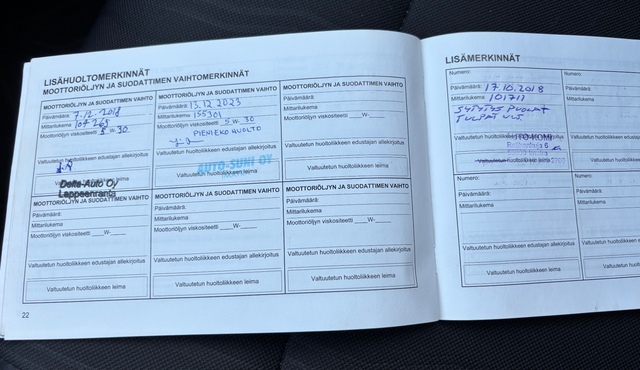 LISÄHUOLTOMERKINNÄT
MOOTTORIÖLJYN JA SUODATTIMEN VAIHTOMERKINNÄT
MOOTTORIÖLJYN JA SUODATTIMEN VAIHTO
Päivämäärä: 7.12.2018
Mittarilukema 104265
Moottoriöljyn viskositeetti 5 W- 30
Valtuutetun huoltoliikkeen edustajan allekirjoitus
Valtuutetun huoltoliikkeen leima
Delta-Auto Oy
Lappeenranta
MOOTTORIÖLJYN JA SUODATTIMEN VAIHTO
Päivämäärä: 13.12.2023
Mittarilukema 155301
Moottoriöljyn viskositeetti 5 W- 30
PIENI EKO HUOLTO
Valtuutetun huoltoliikkeen edustajan allekirjoitus
AUTO-SUNI OY
Valtuutetun huoltoliikkeen leima
MOOTTORIÖLJYN JA SUODATTIMEN VAIHTO
Päivämäärä:
Mittarilukema
Moottoriöljyn viskositeetti ___W-____
Valtuutetun huoltoliikkeen edustajan allekirjoitus
Valtuutetun huoltoliikkeen leima
MOOTTORIÖLJYN JA SUODATTIMEN VAIHTO
Päivämäärä:
Mittarilukema
Moottoriöljyn viskositeetti ___W-____
Valtuutetun huoltoliikkeen edustajan allekirjoitus
Valtuutetun huoltoliikkeen leima
MOOTTORIÖLJYN JA SUODATTIMEN VAIHTO
Päivämäärä:
Mittarilukema
Moottoriöljyn viskositeetti ___W-____
Valtuutetun huoltoliikkeen edustajan allekirjoitus
Valtuutetun huoltoliikkeen leima
MOOTTORIÖLJYN JA SUODATTIMEN VAIHTO
Päivämäärä:
Mittarilukema
Moottoriöljyn viskositeetti ___W-____
Valtuutetun huoltoliikkeen edustajan allekirjoitus
Valtuutetun huoltoliikkeen leima
22
LISÄMERKINNÄT
Numero:
Päivämäärä: 17.10.2018
Mittarilukema 101711
SYTYTYS PUOLAT
TULPAT
Valtuutetun huoltoliikkeen edustajan allekirjoitus
Valtuutetun huoltoliikkeen leima
Numero:
Päivämäärä:
Mittarilukema
Valtuutetun huoltoliikkeen ed
Valtuutetun huoltoliik
Numero:
Päivämäärä:
Mittarilukema
Valtuutetun huoltoliikkeen edustajan allekirjoitus
Valtuutetun huoltoliikkeen leima
Numero:
Päivämäärä:
Mittarilukema
Valtuutetun huoltoliikkeen ed
Valtuutetun huolto